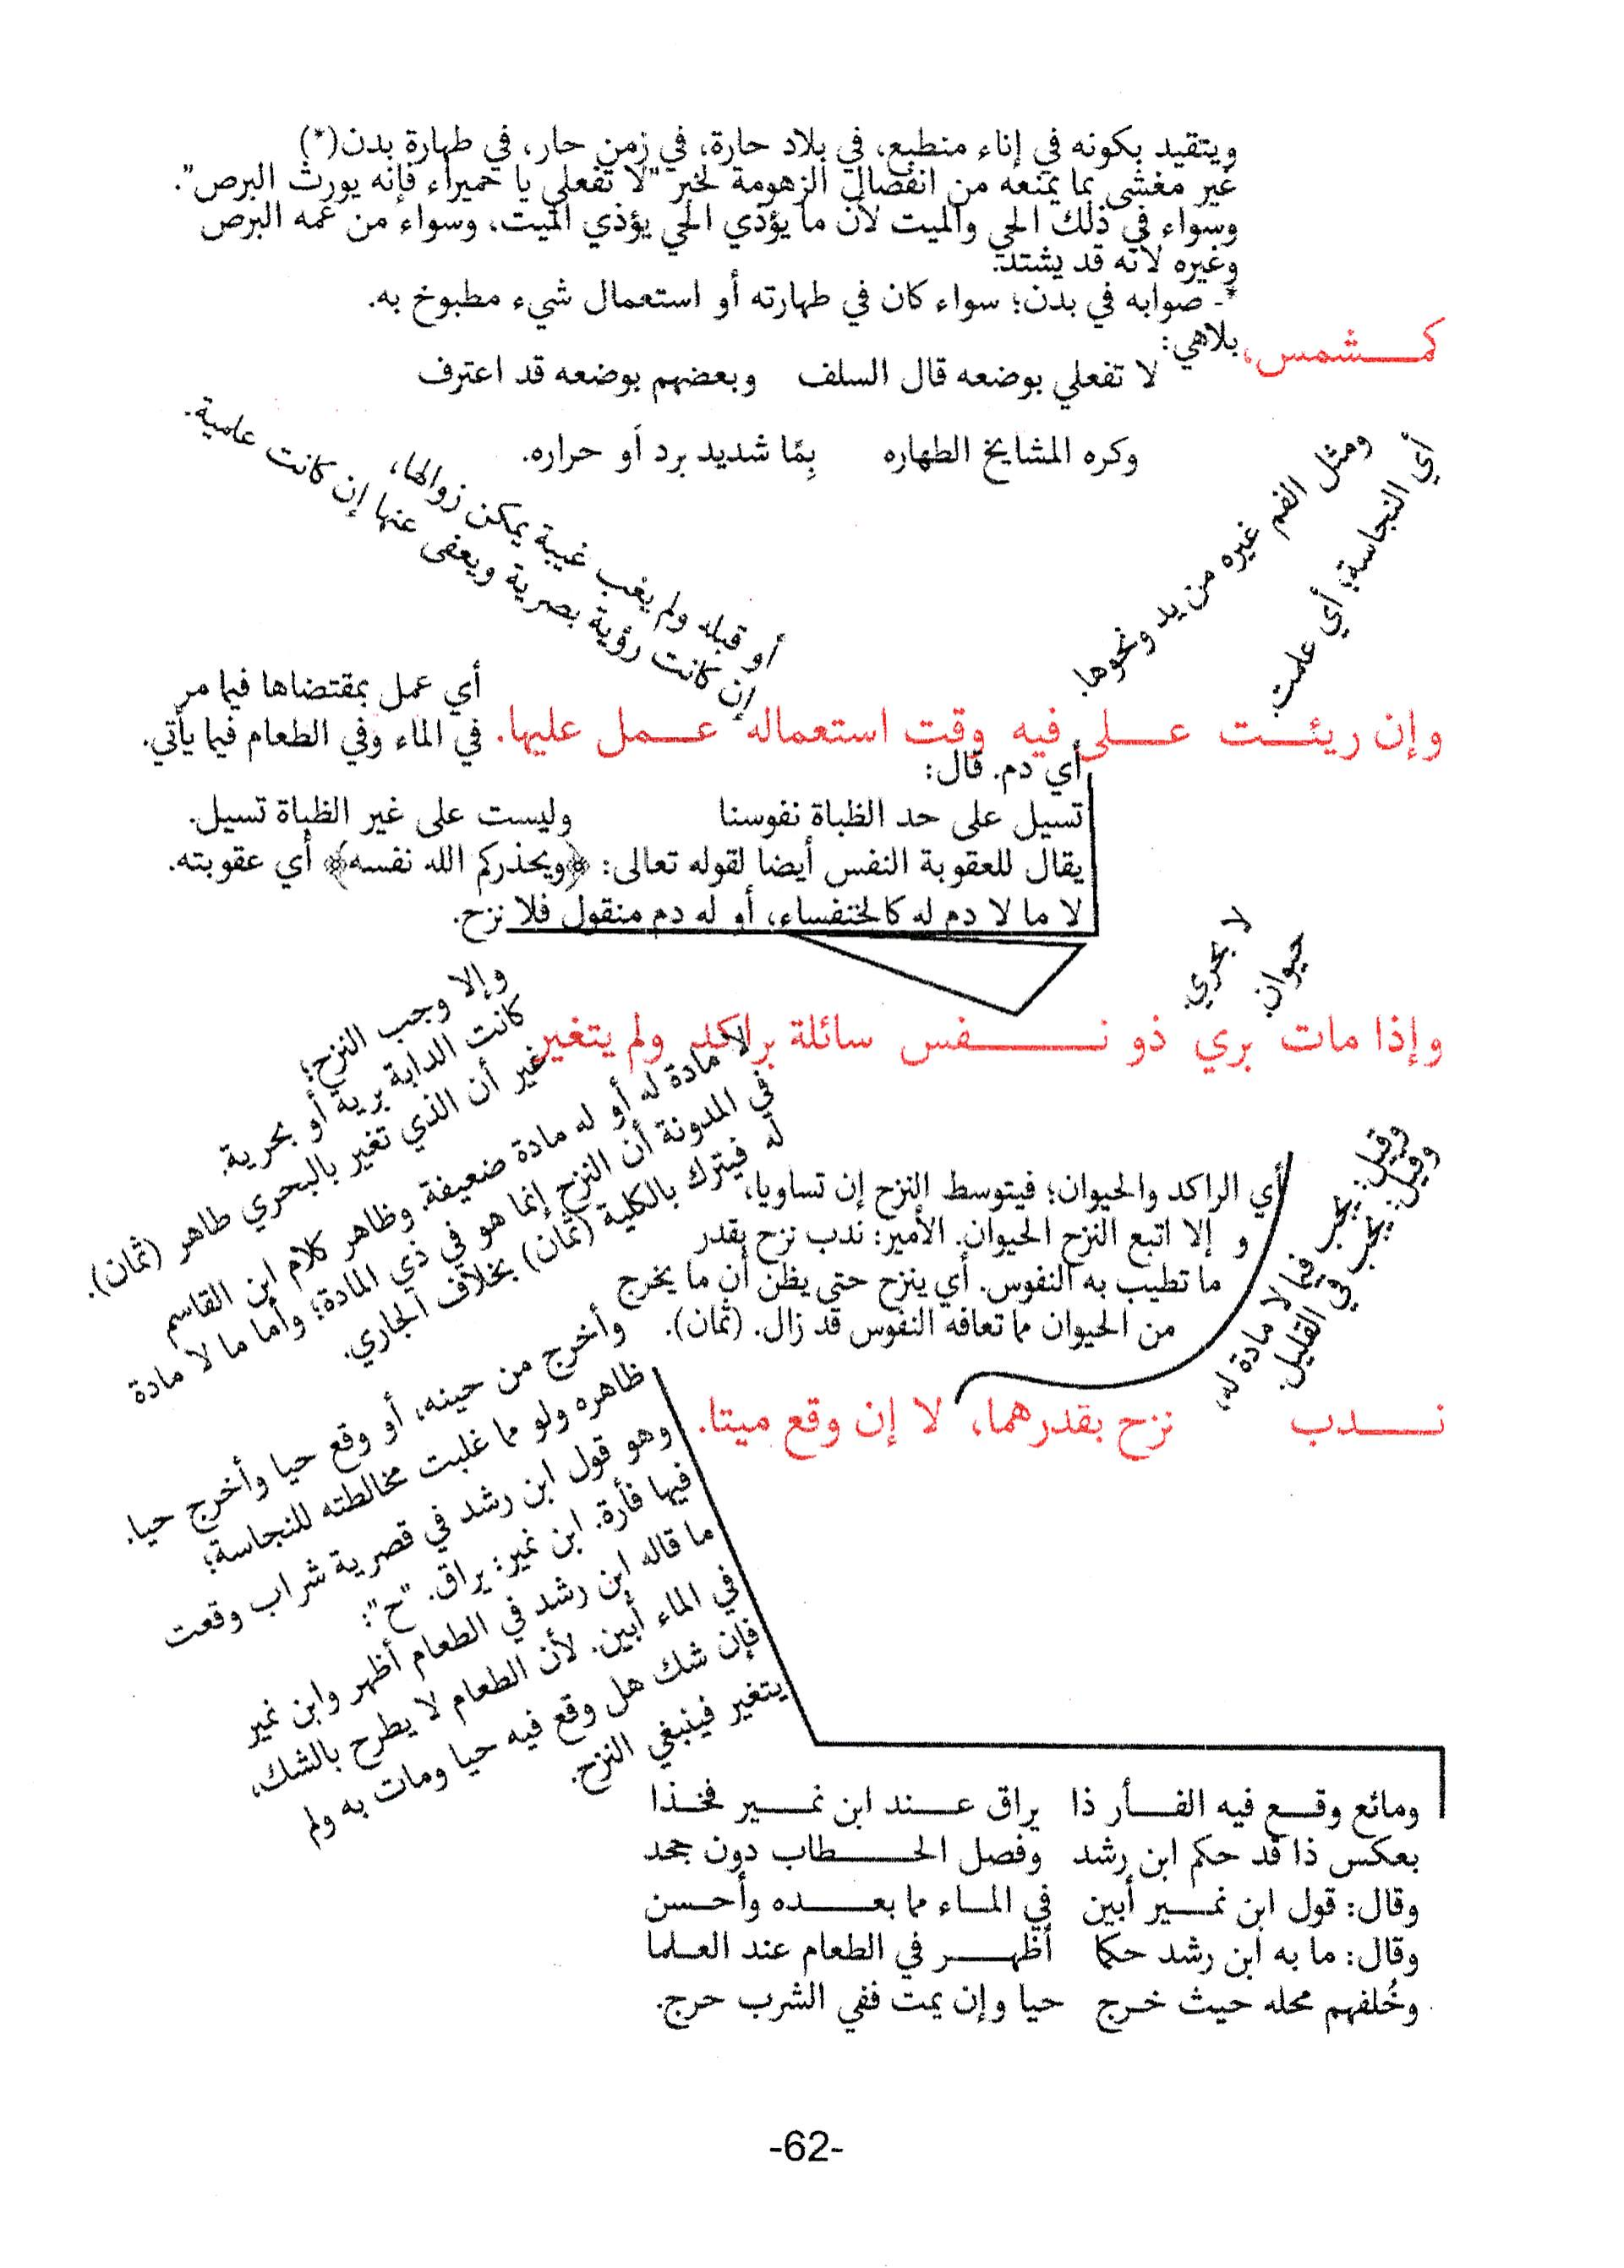 ويتقيد بكونه في إناء منطبع، في بلاد حارة، في زمن حار، في طهارة بدن(*)
غير مغشى بما يمنعه من انفصال الزهومة لخبر "لا تفعلي يا حميراء فإنه يورث البرص".
وسواء في ذلك الحي والميت لأن ما يؤذي الحي يؤذي الميت، وسواء من عمه البرص
وغيره لأنه قد يشتد.
*ـ صوابه في بدن؛ سواء كان في طهارته أو استعمال شيء مطبوخ به.
كمـــشمس، بلاهي:
لا تفعلي بوضعه قال السلف وبعضهم بوضعه قد اعترف
وكره المشايخ الطهاره بِمًا شديد برد اَو حراره.
أي النجاسة؛ أي علمت.
ومثل الفم غيره من يد ونحوها.
أو قبله ولم يغب غيبة يمكن زوالها،
إن كانت رؤية بصرية ويعفى عنها إن كانت علمية.
وإن ريئـــت عـــلى فيه وقت استعماله عـــمل عليها.
أي عمل بمقتضاها فيما مر
في الماء وفي الطعام فيما يأتي.
أي دم. قال:
تسيل على حد الظباة نفوسنا وليست على غير الظباة تسيل.
يقال للعقوبة النفس أيضا لقوله تعالى: ﴿ويحذركم الله نفسه﴾ أي عقوبته.
لا ما لا دم له كالخنفساء، أو له دم منقول فلا نزح.
حيوان.
لا بحري
وإذا مات بري ذو نـــــفس سائلة براكد ولم يتغير
وإلا وجب النزح؛
كانت الدابة برية أو بحرية.
غير أن الذي تغير بالبحري طاهر (ثمان).
لا مادة له أو له مادة ضعيفة. وظاهر كلام ابن القاسم
في المدونة أن النزح إنما هو في ذي المادة؛ وأما ما لا مادة
له فيترك بالكلية (ثمان) بخلاف الجاري.
وقيل: يجب في القليل.
وقيل: يجب فيما لا مادة له،
أي الراكد والحيوان؛ فيتوسط النزح إن تساويا،
و إلا اتبع النزح الحيوان. الأمير: ندب نزح بقدر
ما تطيب به النفوس. أي ينزح حتى يظن أن ما يخرج
من الحيوان مما تعافه النفوس قد زال. (ثمان).
نـــــدب نزح بقدرهما، لا إن وقع ميتا.
وأخرج من حينه، أو وقع حيا وأخرج حيا.
ظاهره ولو مما غلبت مخالطته للنجاسة؛
وهو قول ابن رشد في قصرية شراب وقعت
فيها فأرة. ابن نمير: يراق. "ح":
ما قاله ابن رشد في الطعام أظهر وابن نمير
في الماء أبين. لأن الطعام لا يطرح بالشك،
فإن شك هل وقع فيه حيا ومات به ولم
يتغير فينبغي النزح.
ومائع وقـــع فيه الفـــأر ذا يراق عـــند ابن نمـــير فخـذا
بعكس ذا قد حكم ابن رشد وفصل الحـــــطاب دون جحد
وقال: قول ابن نمـــير أبين في المـاء مما بعـــــده وأحـسن
وقال: ما به ابن رشد حكما أظهـــر في الطعام عند العـلما
وخُلفهم محله حيث خـرج حيا وإن يمت ففي الشرب حرج.
-62-